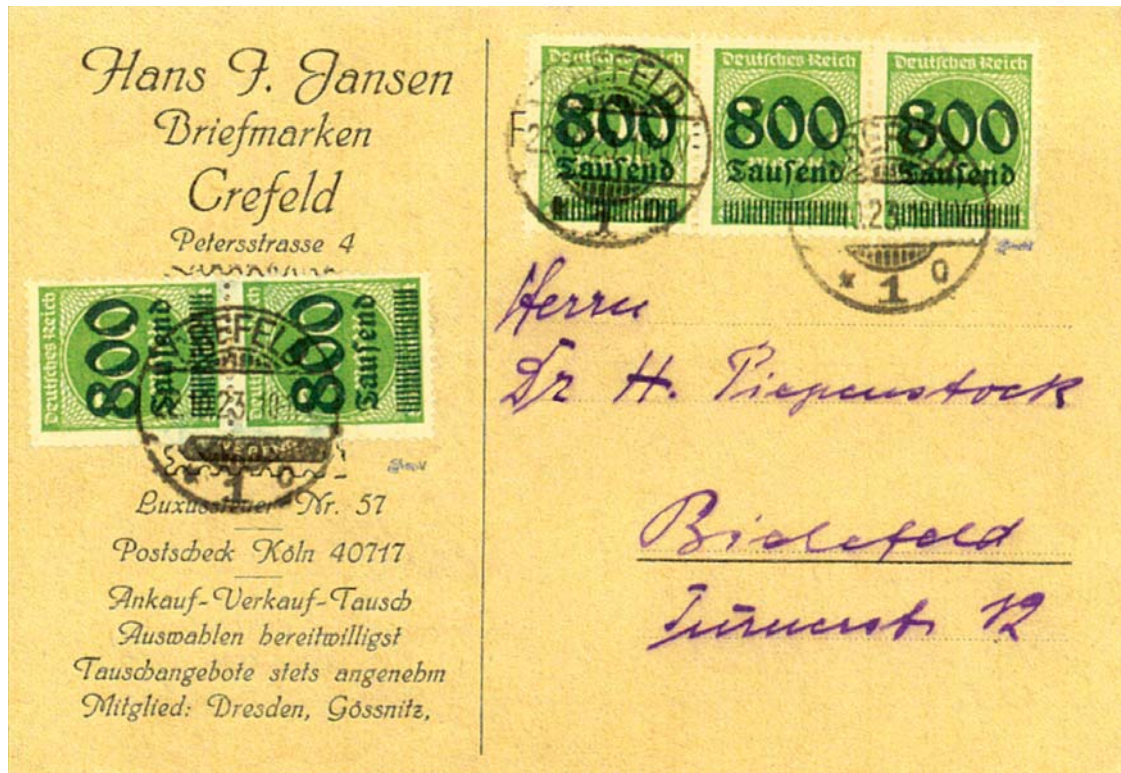 Hans F. Jansen
Briefmarken
Crefeld
Petersstrasse 4
Deutsches Reich
800
Tausend
800
Tausend
CREFELD
23 10
* 1 0
Luxussteuer Nr. 57
Postscheck Köln 40717
Ankauf-Verkauf-Tausch
Auswahlen bereitwilligst
Tauschangebote stets angenehm
Mitglied: Dresden, Gössnitz,
Deutsches Reich Deutsches Reich Deutsches Reich
800 800 800
Tausend Tausend Tausend
CREFELD
1
23
* 1 0
Herrn
Dr H. Piepenstock
Bielefeld
Turnerst. 12